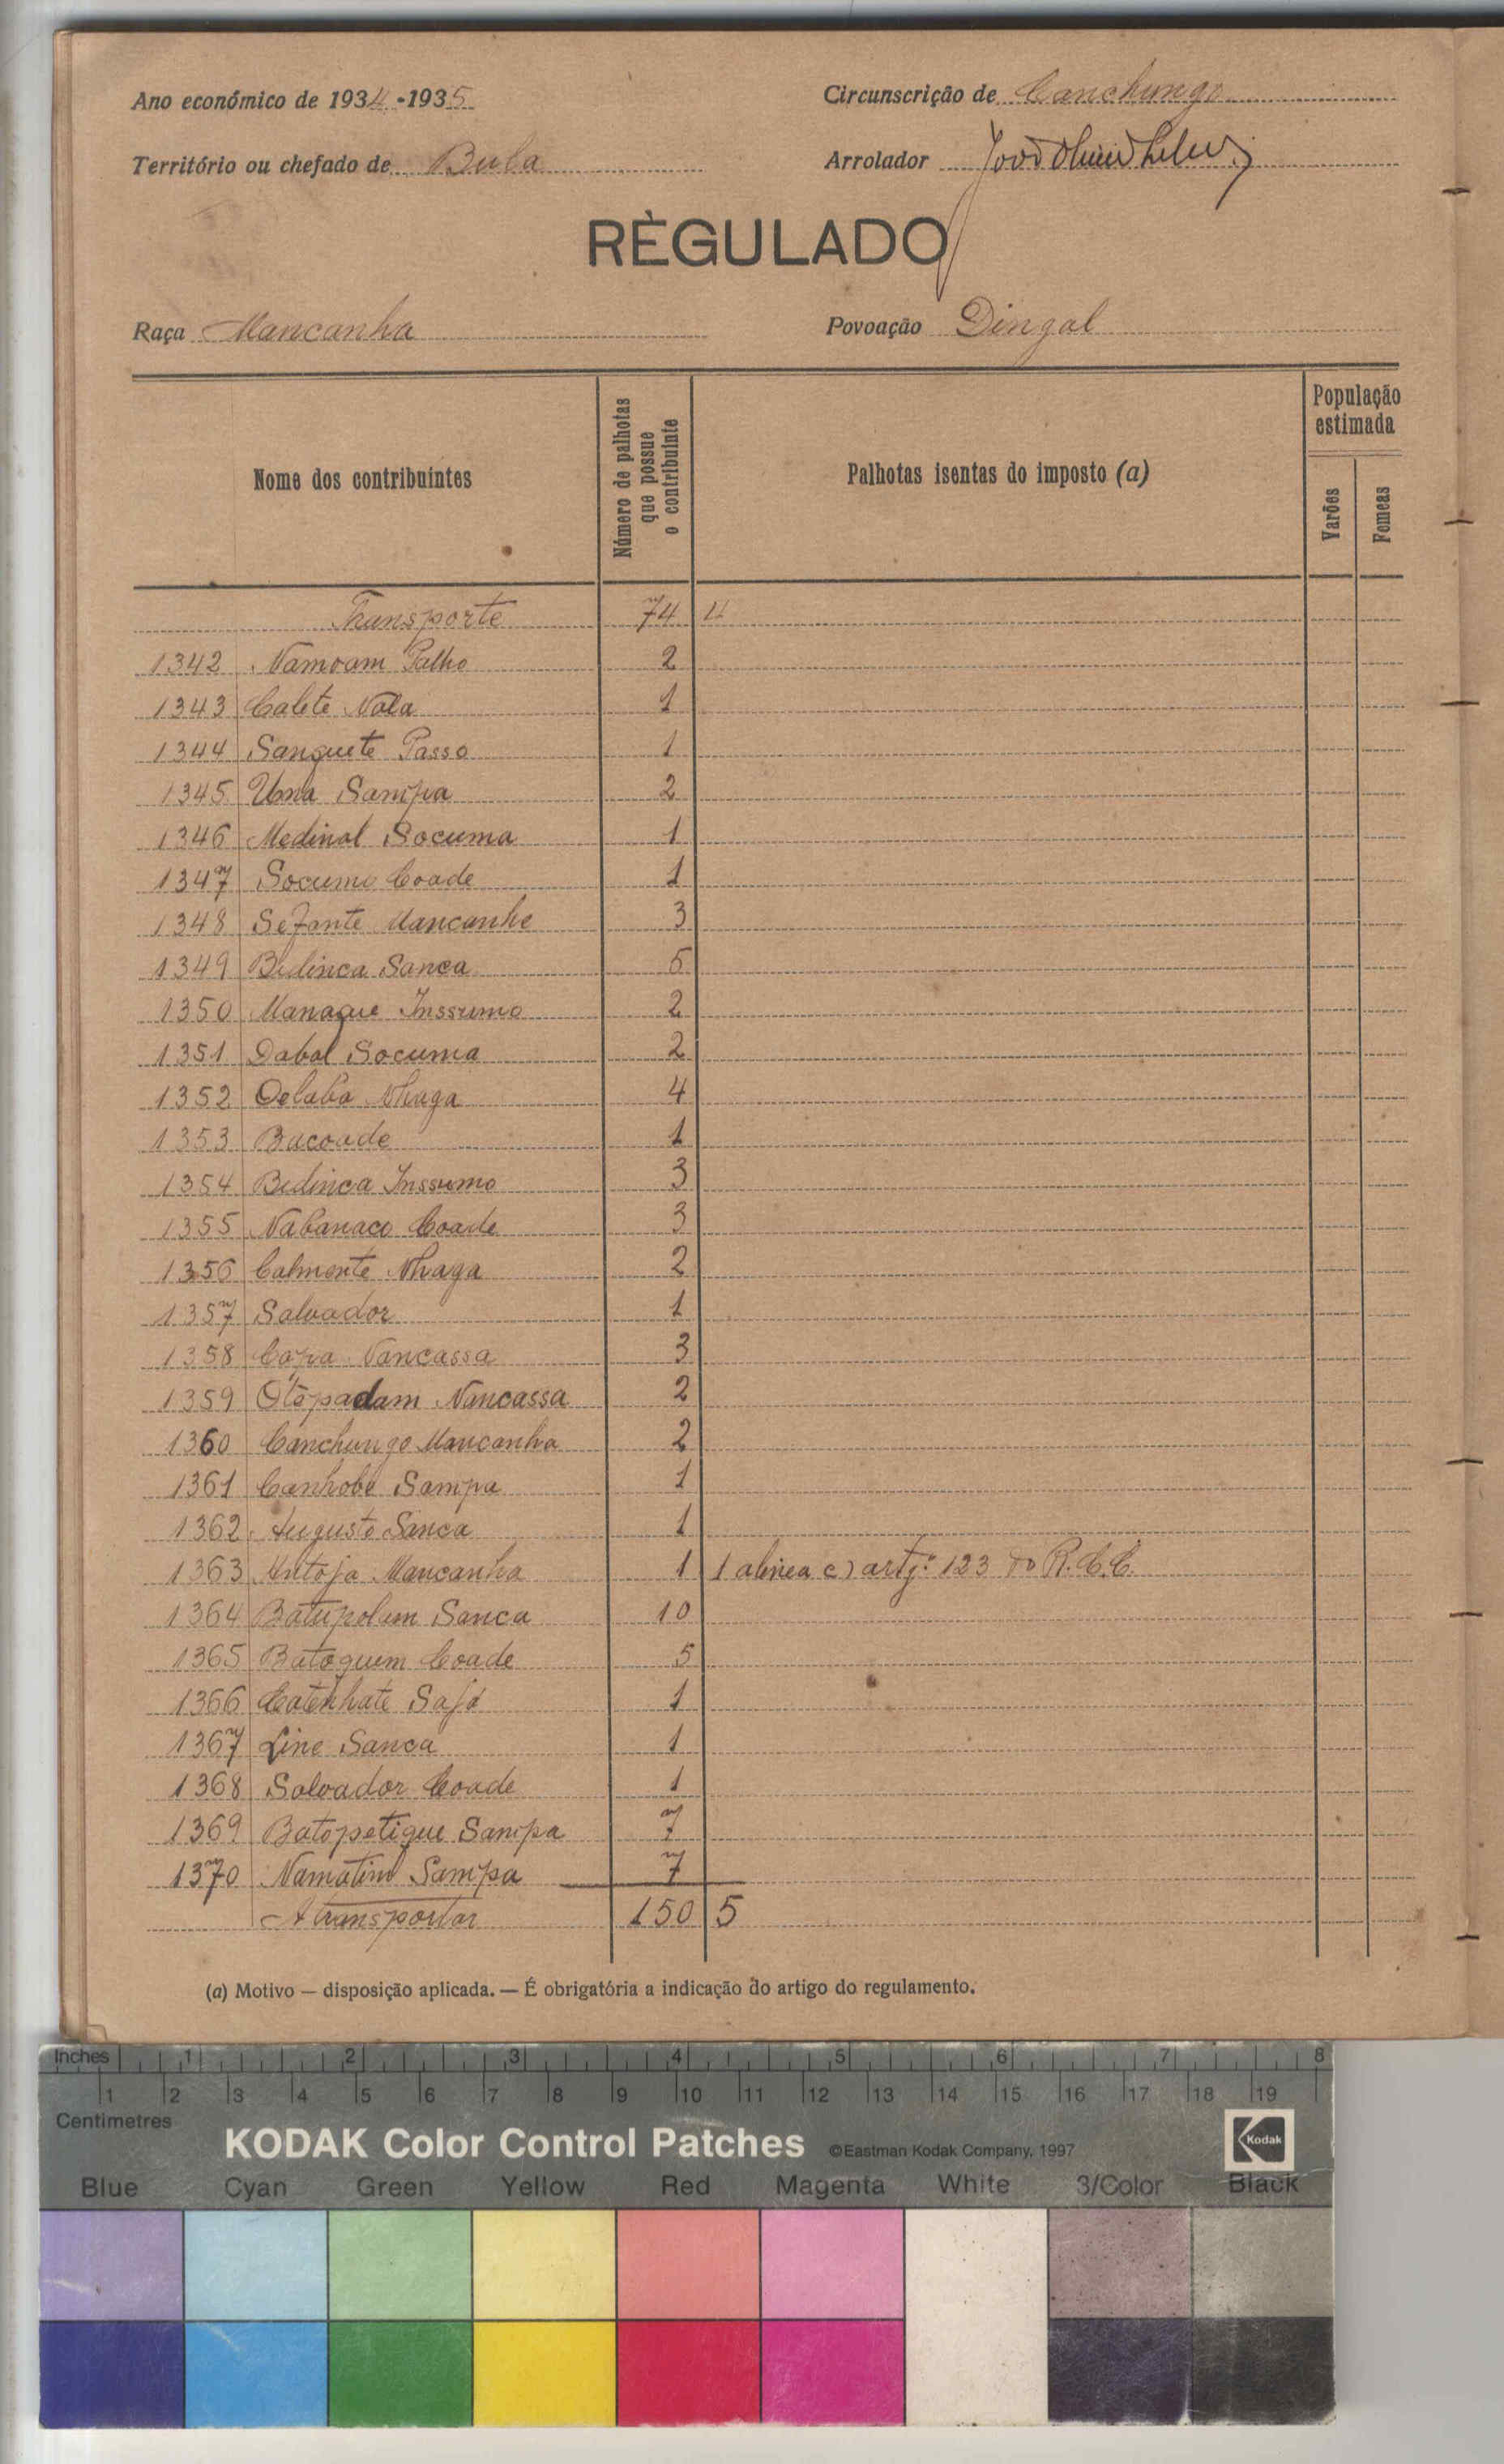 Ano económico de 1934-1935
Circunscrição de Canchungo
Território ou chefado de Bula
Arrolador
RÈGULADO
Raça Mancanha
Povoação Dingal
Nome dos contribuintes
Número de palhotas que possue o contribuinte
Palhotas isentas do imposto (a)
População estimada
Varões
Femeas
Transporte 74 4
1342 Namoam Palho 2
1343 Calete Nala 1
1344 Sanquete Passo 1
1345 Uma Sampa 2
1346 Medinal Socuma 1
1347 Socumo Coade 1
1348 Sefante Mancanhe 3
1349 Bedinca Sanca 5
1350 Manaque Inssumo 2
1351 Dabal Socuma 2
1352 Oelaba Nhaga 4
1353 Bacoade 1
1354 Bedinca Inssumo 3
1355 Nabanaco Coade 3
1356 Calmente Nhaga 2
1357 Salvador 1
1358 Capa Vancassa 3
1359 Otepadam Nancassa 2
1360 Canchungo Mancanha 2
1361 Canhobe Sampa 1
1362 Augusto Sanca 1
1363 Antoja Mancanha 1 1 alinea c) artg.º 123 do R.C.C.
1364 Batupolum Sanca 10
1365 Batoquem Coade 5
1366 Catenhate Safó 1
1367 Line Sanca 1
1368 Salvador Coade 1
1369 Batopetique Sampa 7
1370 Namatim Sampa 7
A transportar 150 5
(a) Motivo — disposição aplicada. — É obrigatória a indicação do artigo do regulamento.
Inches 1 2 3 4 5 6 7 8
1 2 3 4 5 6 7 8 9 10 11 12 13 14 15 16 17 18 19
Centimetres
KODAK Color Control Patches ©Eastman Kodak Company, 1997 Kodak
Blue Cyan Green Yellow Red Magenta White 3/Color Black